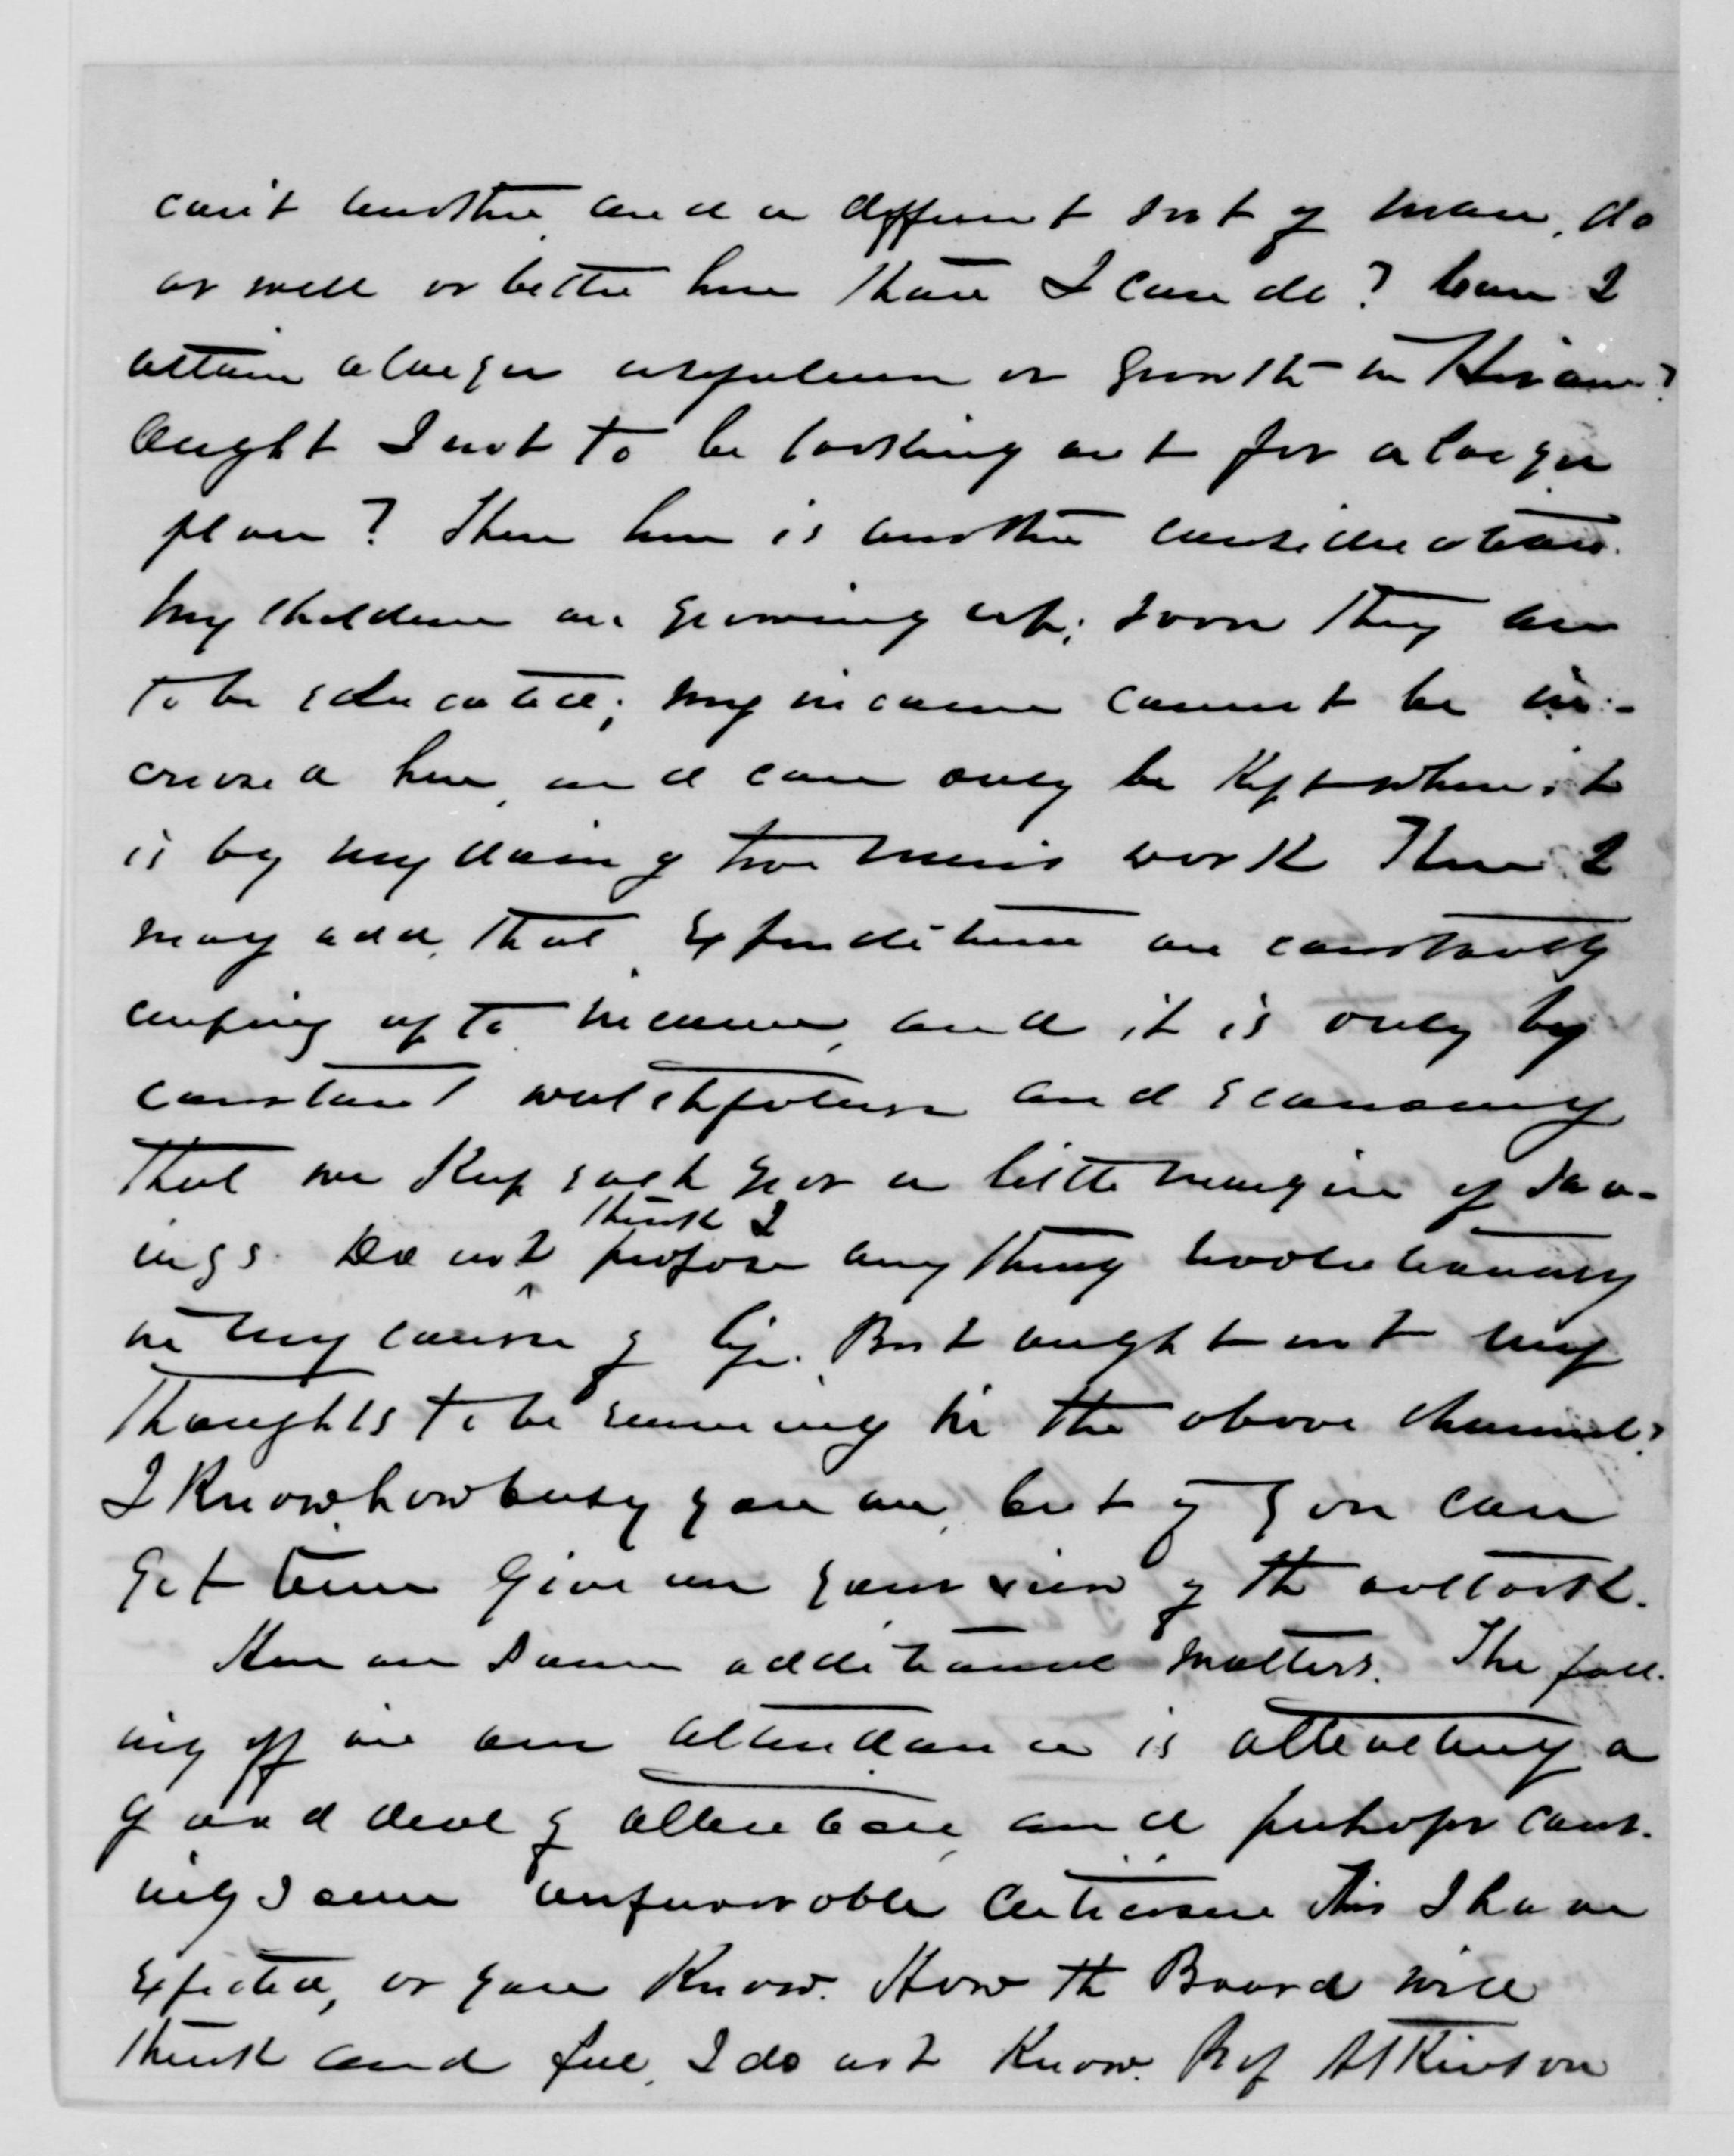 can't another, and a different sort of man, do
as well or better here than I can do? Can I
attain a larger usefulness or growth in Hiram?
Ought I not to be looking out for a larger
place? Then here is another consideration.
My children are growing up; soon they are
to be educated; my income cannot be in-
creased here, and can only be kept where it
is by my doing two men's work. Then I
may add, that expenditures are constantly
creeping up to income, and it is only by
constant watchfulness and economy
that we keep each year a little margin of sav-
ings. Do not think I propose anything revolutionary
in my course of life. But ought not my
thoughts to be running in the above channel?
I know how busy you are, but if you can
get time give me your view of the outlook.
Here are some additional matters. The fall-
ing off in our attendance is attracting a
good deal of attention, and perhaps caus-
ing some unfavorable criticism. This I have
expected, as you know. How the Board will
think and feel, I do not know. Prof Atkinson